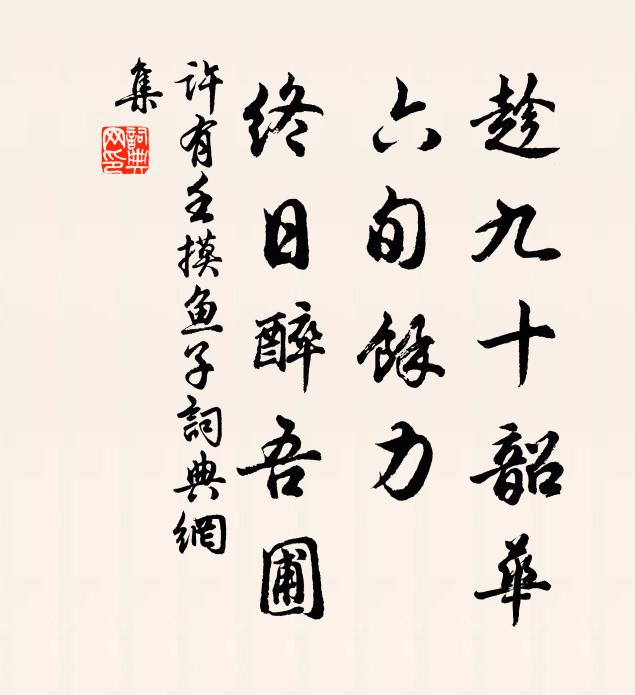 趁九十韶華
六旬餘力
終日醉吾圃
許有壬摸鱼子詞典網
集
詞典網印